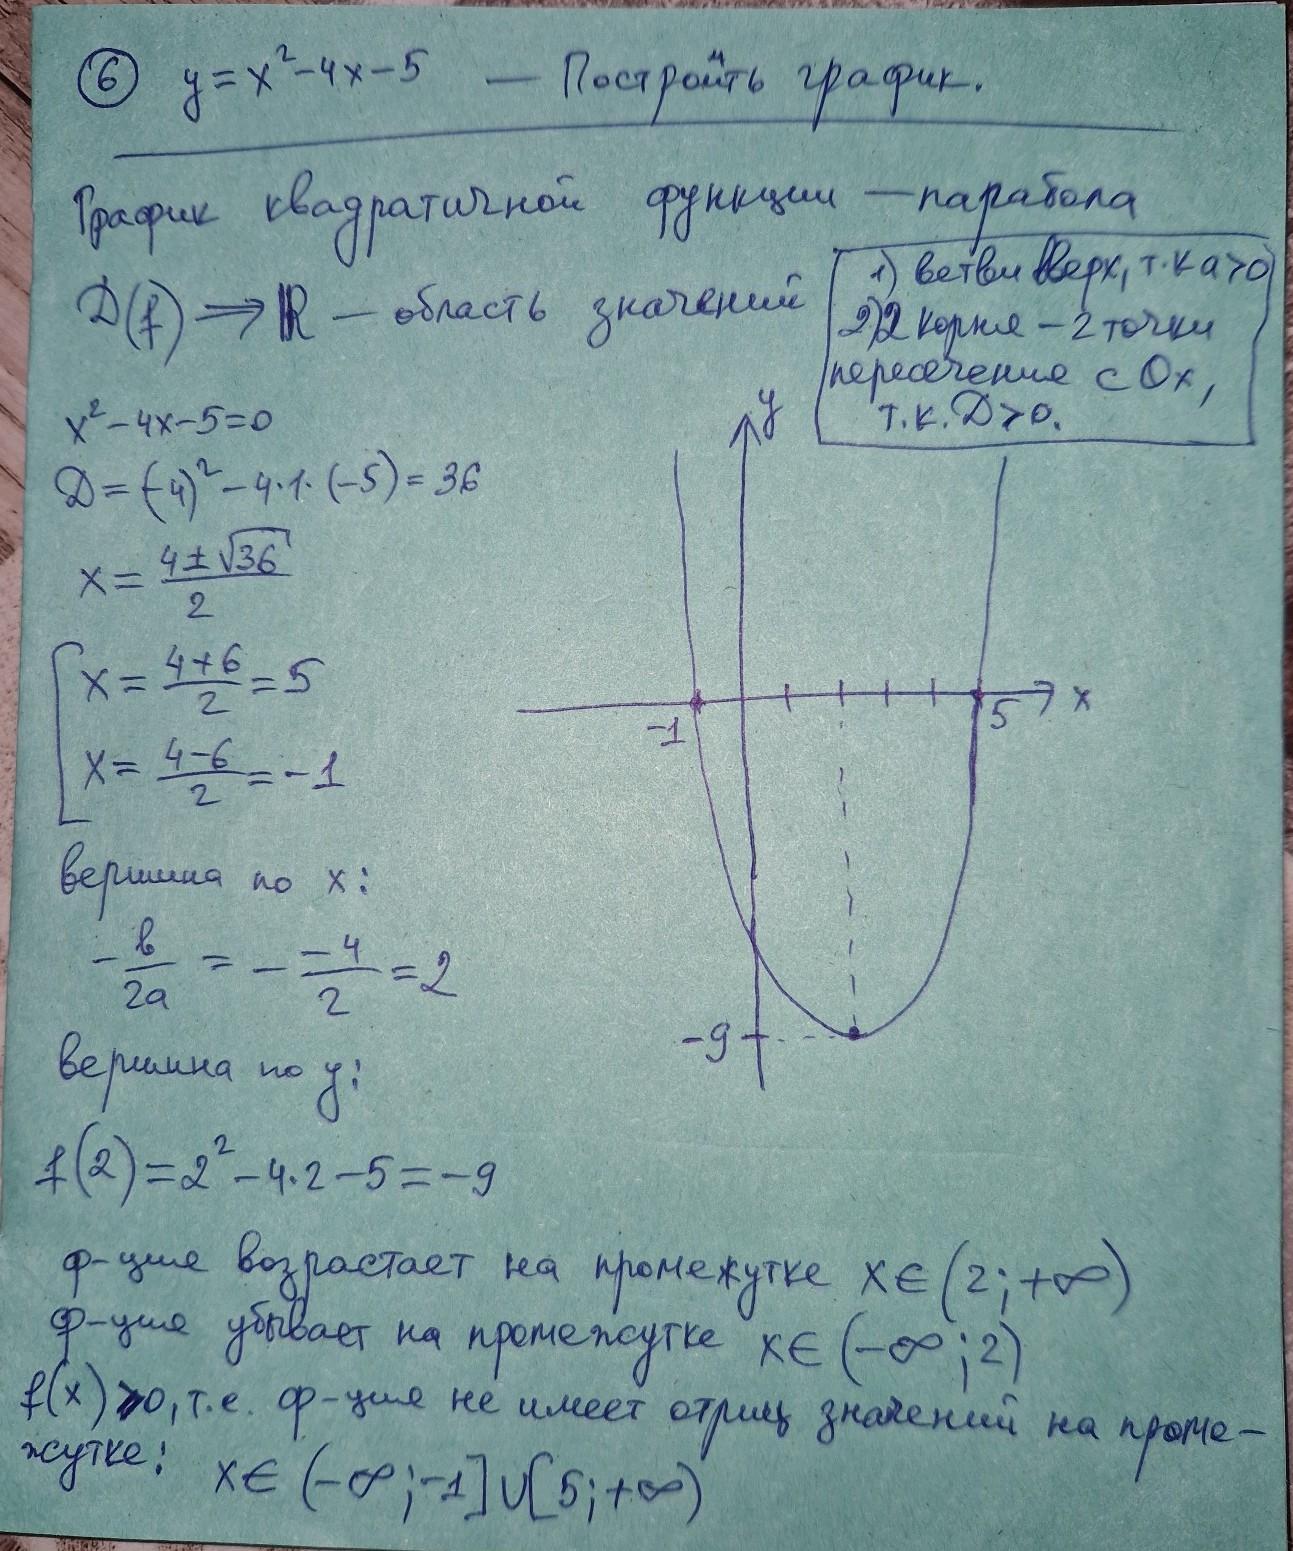 6 y = x² - 4x - 5 — Построить график.
График квадратичной функции — парабола
D(f) ⇒ R — область значений
1) ветви вверх, т.к a>0
2) 2 корня - 2 точки
пересечения с Ox,
т.к. D>0.
x² - 4x - 5 = 0
D = (-4)² - 4·1·(-5) = 36
x = (4±√36)/2
x = (4+6)/2 = 5
x = (4-6)/2 = -1
вершина по x:
-b/2a = - (-4)/2 = 2
вершина по y:
f(2) = 2² - 4·2 - 5 = -9
y
x
-1
5
-9
ф-ция возрастает на промежутке x∈(2;+∞)
ф-ция убывает на промежутке x∈(-∞;2)
f(x)⩾0, т.е. ф-ция не имеет отриц значений на проме-
жутке: x∈(-∞;-1]∪[5;+∞)